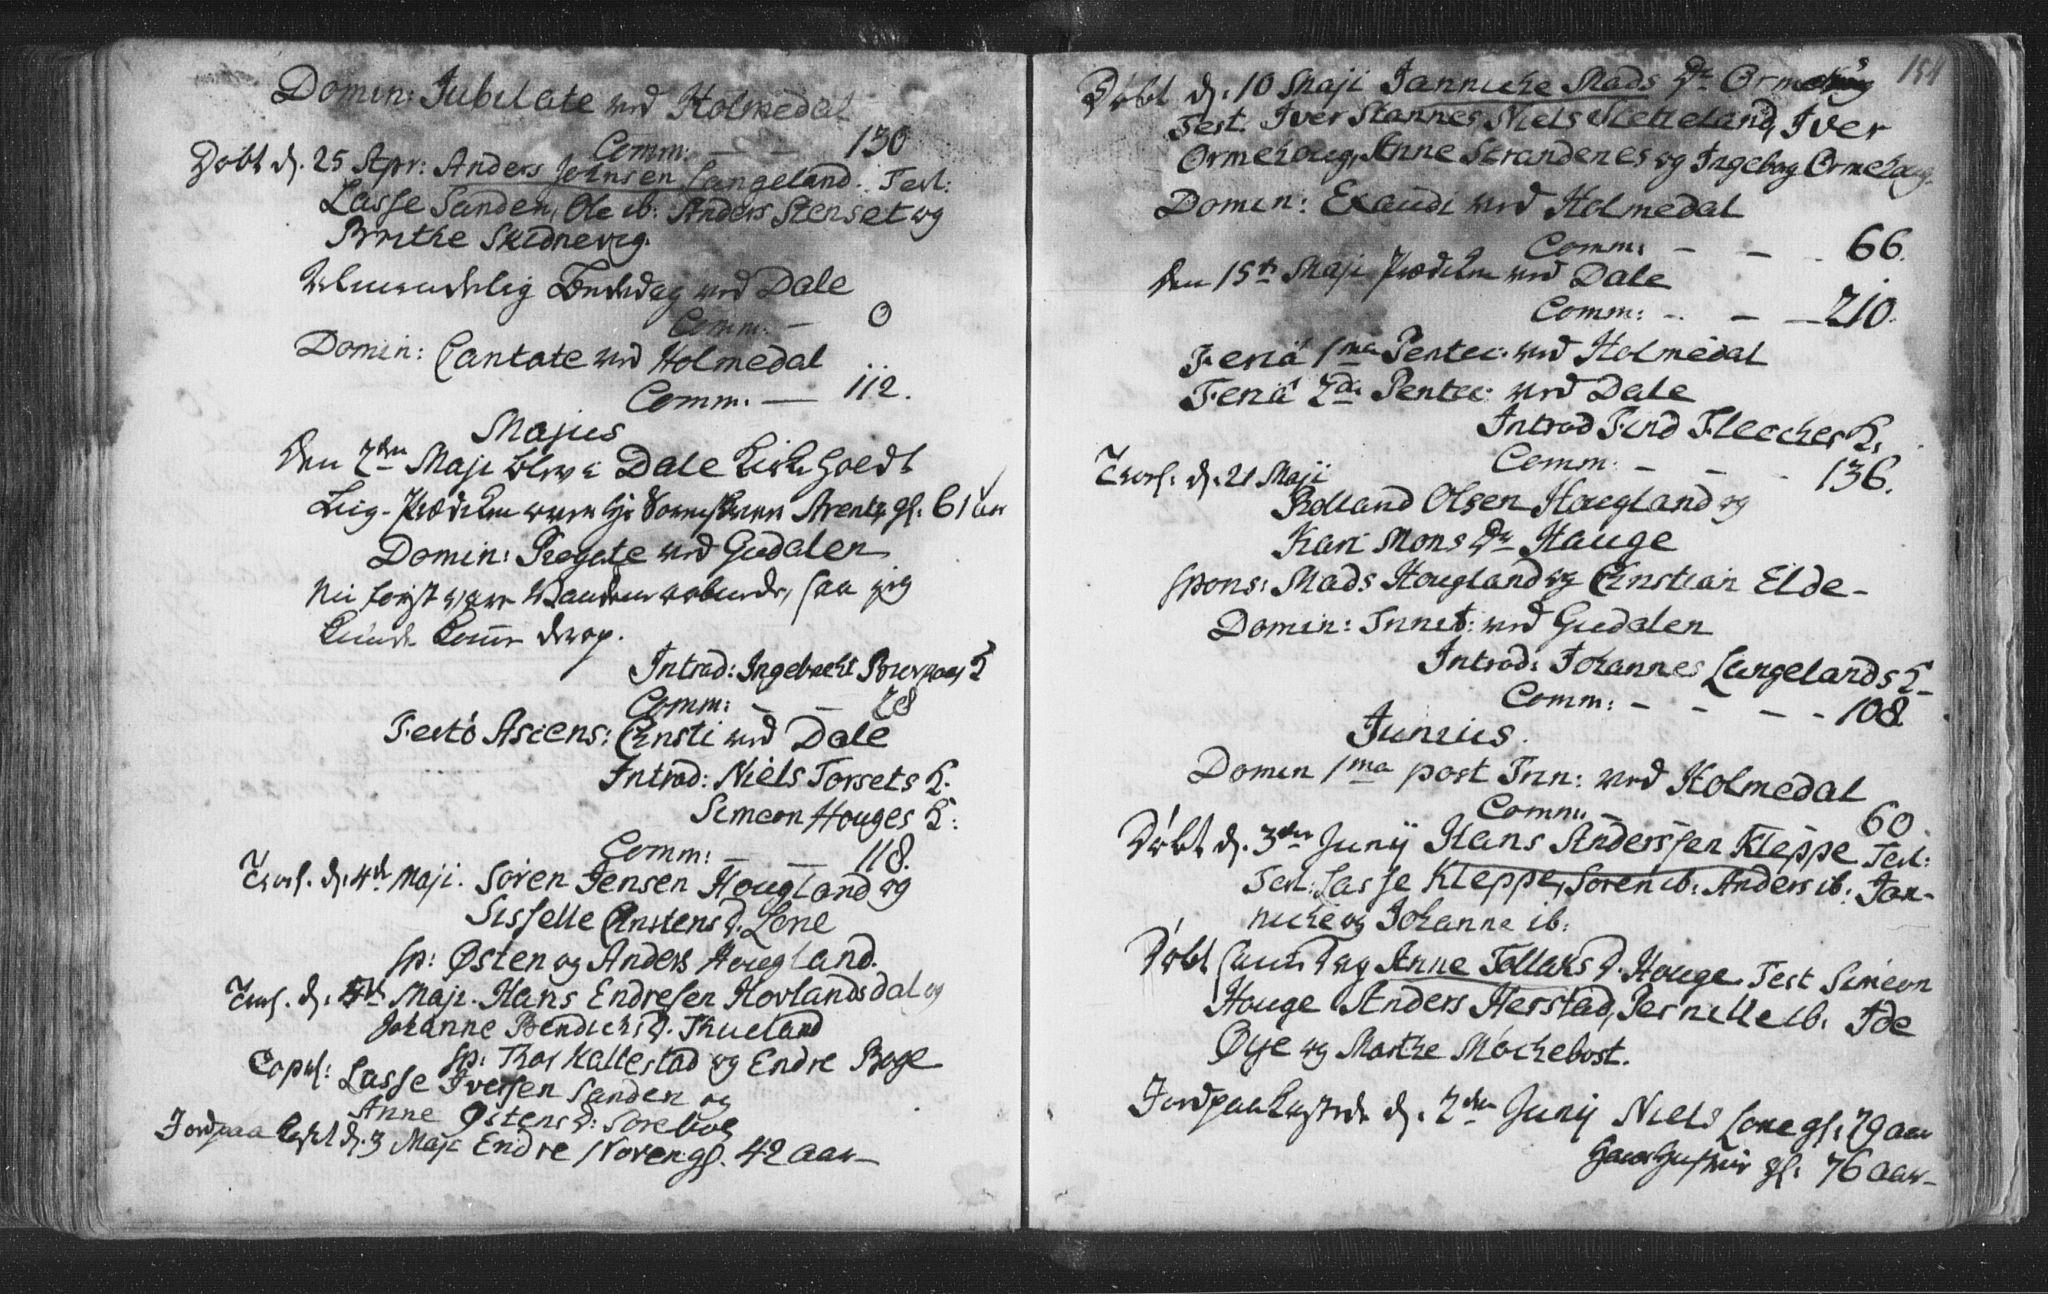 Domin: Jubilate ved Holmedal
Comm: — — 130
Døbt d. 25 Apr: Anders Johnsen Langeland. Test:
Lasse Sanden, Ole ib: Anders Stenset og
Brithe Skidnevig.
Almindelig Bededag ved Dale
Comm: — 0
Domin: Cantate ved Holmedal
Comm: — 112.
Majus
Den 2den Maji blev i Dale Kirke holdt
Lig-Prædiken over Hr Arentz gl: 61 aar
Domin: Rogate ved Gudalen
Nu først vare saa jeg
kunde komme derop.
Introd: Ingebrecht K
Comm: — — 28
Festô Ascens: Christi ved Dale
Introd: Niels Torsets K.
Simeon Houges K:
Comm: — — 118.
Trol. d. 4de Maji. Sören Jensen Hougland og
Sisselle Christens D. Lone
sp: Østen og Anders Hougland.
Trol. d. Maji. Hans Endresen Hovlandsdal og
Johanne Bendichs D. Thueland
sp: Thor Kallestad og Endre Boge
Copul: Lasse Iversen Sanden og
Anne Østens D: Sörebøe
Jordpaa kastet d. 3 Maji Endre Noren gl. 42 aar —
154
Døbt d. 10 Maji Jannicke Mads Dr Ormehoug
Test: Iver Stannes, Niels Sletteland, Iver
Ormehoug, Anne Strandenes og Ingeborg Ormehoug.
Domin: Exaudi ved Holmedal
Comm: — — - 66.
Den 15de Maji Prædiken ved Dale
Comm: - — — 210.
Feriâ 1ma Pentec: ved Holmedal
Feriâ 2da Pentec: ved Dale
Introd Find Fleckes K.
Comm: — - - 136.
Trol. d. 21 Maji
Rolland Olsen Hougland og
Kari Mons Dr Hauge
spons: Mads Hougland og Christian Elde -
Domin: Trinit: ved Gudalen
Introd: Johannes Langelands K -
Comm: - - — - 108
Junius.
Domin 1ma post Trin: ved Holmedal
Comm: — 60
Døbt d. 3die Junij Hans Anderssen Kleppe Test:
Test: Lasse Kleppe, Soren ib: Anders ib: Jan-
niche og Johanne ib:
Døbt samme dag Anne Tollaks D. Houge. Test Simeon
Houge Anders Herstad, Pernille ib. Ide
Øye og Marthe Mochebost.
Jordpaakastede d. 2den Junij Niels Lone gl: 79 aar
gl: 76 aar -